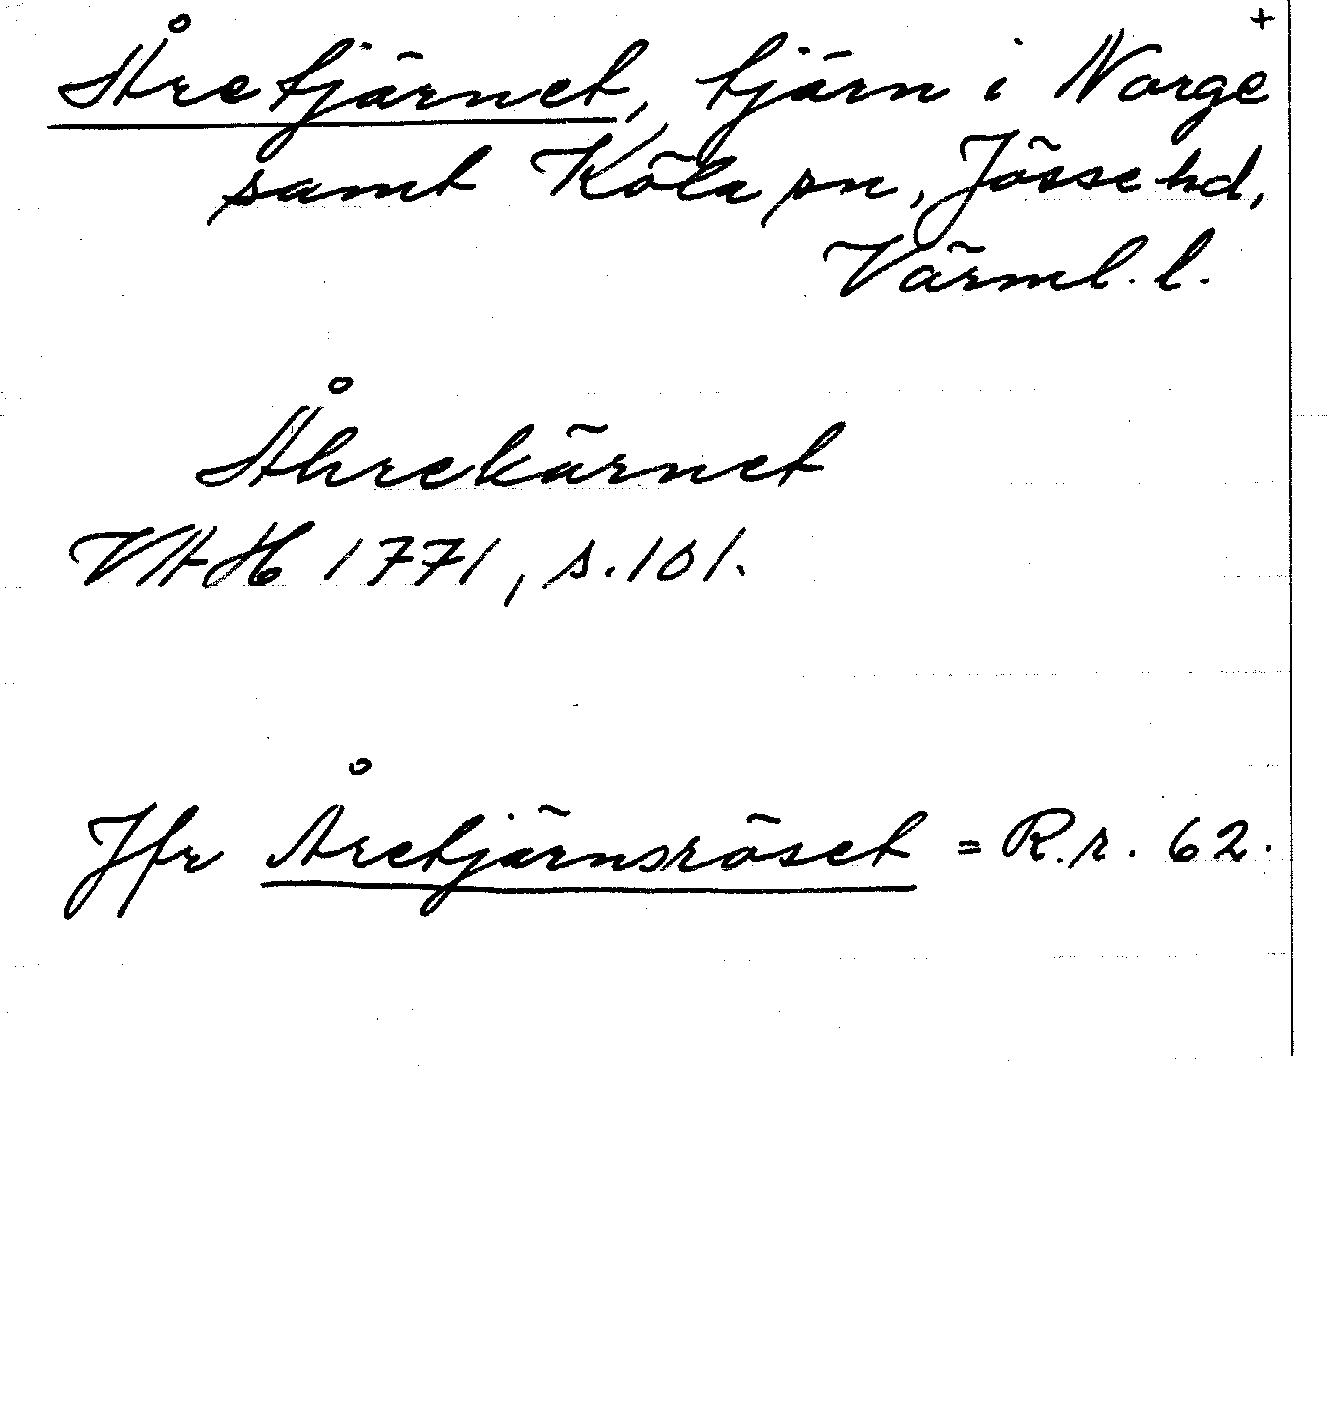 +
Åretjärnet, tjärn i Norge
samt Köla sn, Jösse hd,
Värml. l.
Åhrekärnet
VAH 1771, s. 101.
Jfr Åretjärnsröset = R.r. 62.